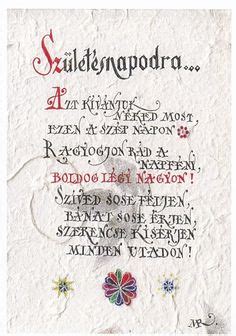 Születésnapodra...
AZT KÍVÁNJUK
NÉKED MOST,
EZEN A SZÉP NAPON
RAGYOGJON RÁD A
NAPFÉNY,
BOLDOG LÉGY NAGYON!
SZÍVED SOSE FÉLJEN,
BÁNAT SOSE ÉRJEN,
SZERENCSE KÍSÉRJEN
MINDEN UTADON!